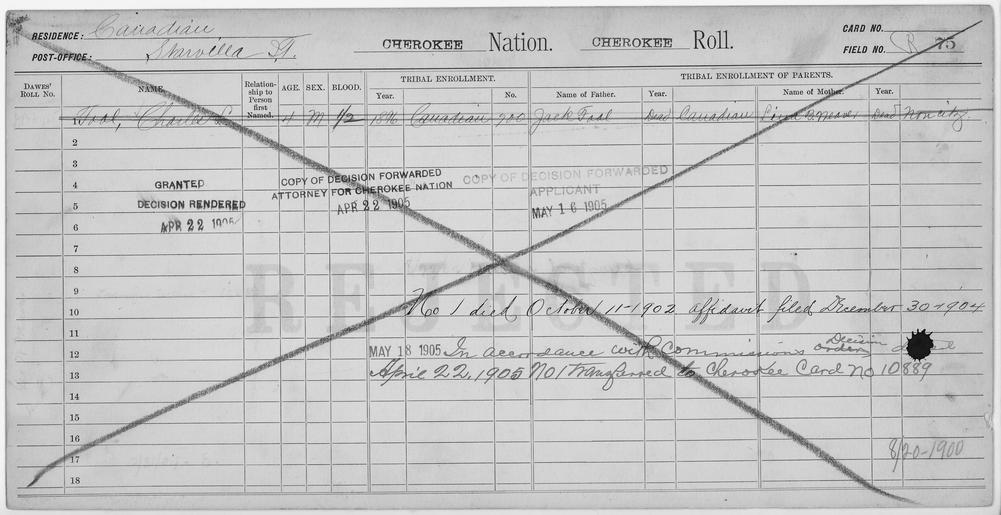 RESIDENCE: Canadian
POST-OFFICE: Starvilla I.T.
CHEROKEE Nation. CHEROKEE Roll.
CARD NO.
FIELD NO. R 75
DAWES' ROLL NO. NAME. Relationship to Person first Named. AGE. SEX. BLOOD. TRIBAL ENROLLMENT. Year. No. TRIBAL ENROLLMENT OF PARENTS. Name of Father. Year. Name of Mother. Year.
Fool, Charles 4 M 1/2 1896 Canadian 700 Jack Fool Dead Canadian Dead Non citz.
2
3
4 GRANTED COPY OF DECISION FORWARDED COPY OF DECISION FORWARDED
ATTORNEY FOR CHEROKEE NATION APPLICANT
5 DECISION RENDERED APR 22 1905 MAY 16 1905
6 APR 22 1905
7
8
REJECTED
9
10 No 1 died October 11-1902 affidavit filed December 30-1904
11
12 MAY 18 1905 In accordance with Commissions Decision order
13 April 22, 1905 No 1 transferred to Cherokee Card No 10889
14
15
16
8/20-1900
17
18